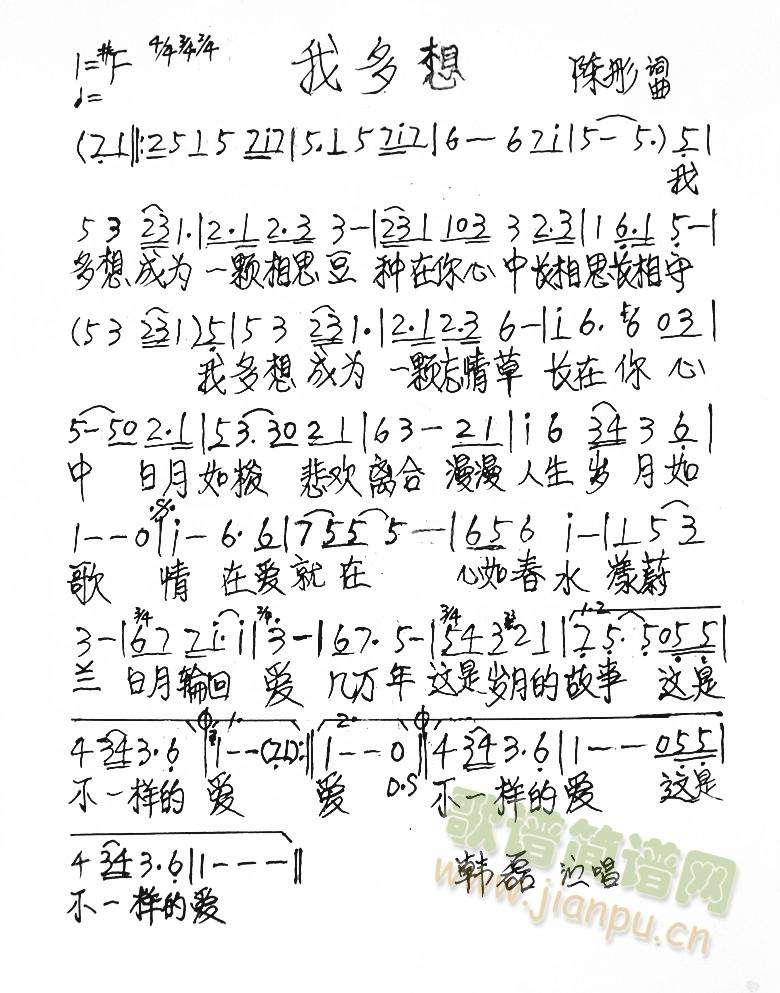 1=#F 4/4 3/4 2/4 我多想 陈彤 词曲
♩=
(7 1‖:2 5 1 5 7i7|5.1 5 7i7|6— 6 7i|5— 5.) 5|
我
5 3 231.|2.1 2.3 3—|231 103 3 2.3|1 6.1 5—|
多想成为一颗相思豆 种在你心中长相思长相守
(5 3 231)5|5 3 231.|2.12.3 6—|i 6. 56 03|
我多想成为 一颗忘情草 长在你心
5—50 2.1|53.30 21|63— 21|i 6 34 3 6|
中 日月如梭 悲欢离合 漫漫人生岁月如
1——0|i— 6. 6|755 5——|656 i—|1 5 3
歌 情 在爱就在 心如春水 漾
3—|3/4 67 7i.i|2/4 3—|67. 5—|3/4 543 21|1.2. 75. 5055|
兰 日月轮回 爱 几万年 这是岁月的故事 这是
4 343.6 1.‖1——(71):‖2. 1——0‖4 343.6|1———055|
不一样的爱 爱 D.S 不一样的爱 这是
4 343.6|1———‖ 韩磊 演唱
不一样的爱
歌谱简谱网
www.jianpu.cn